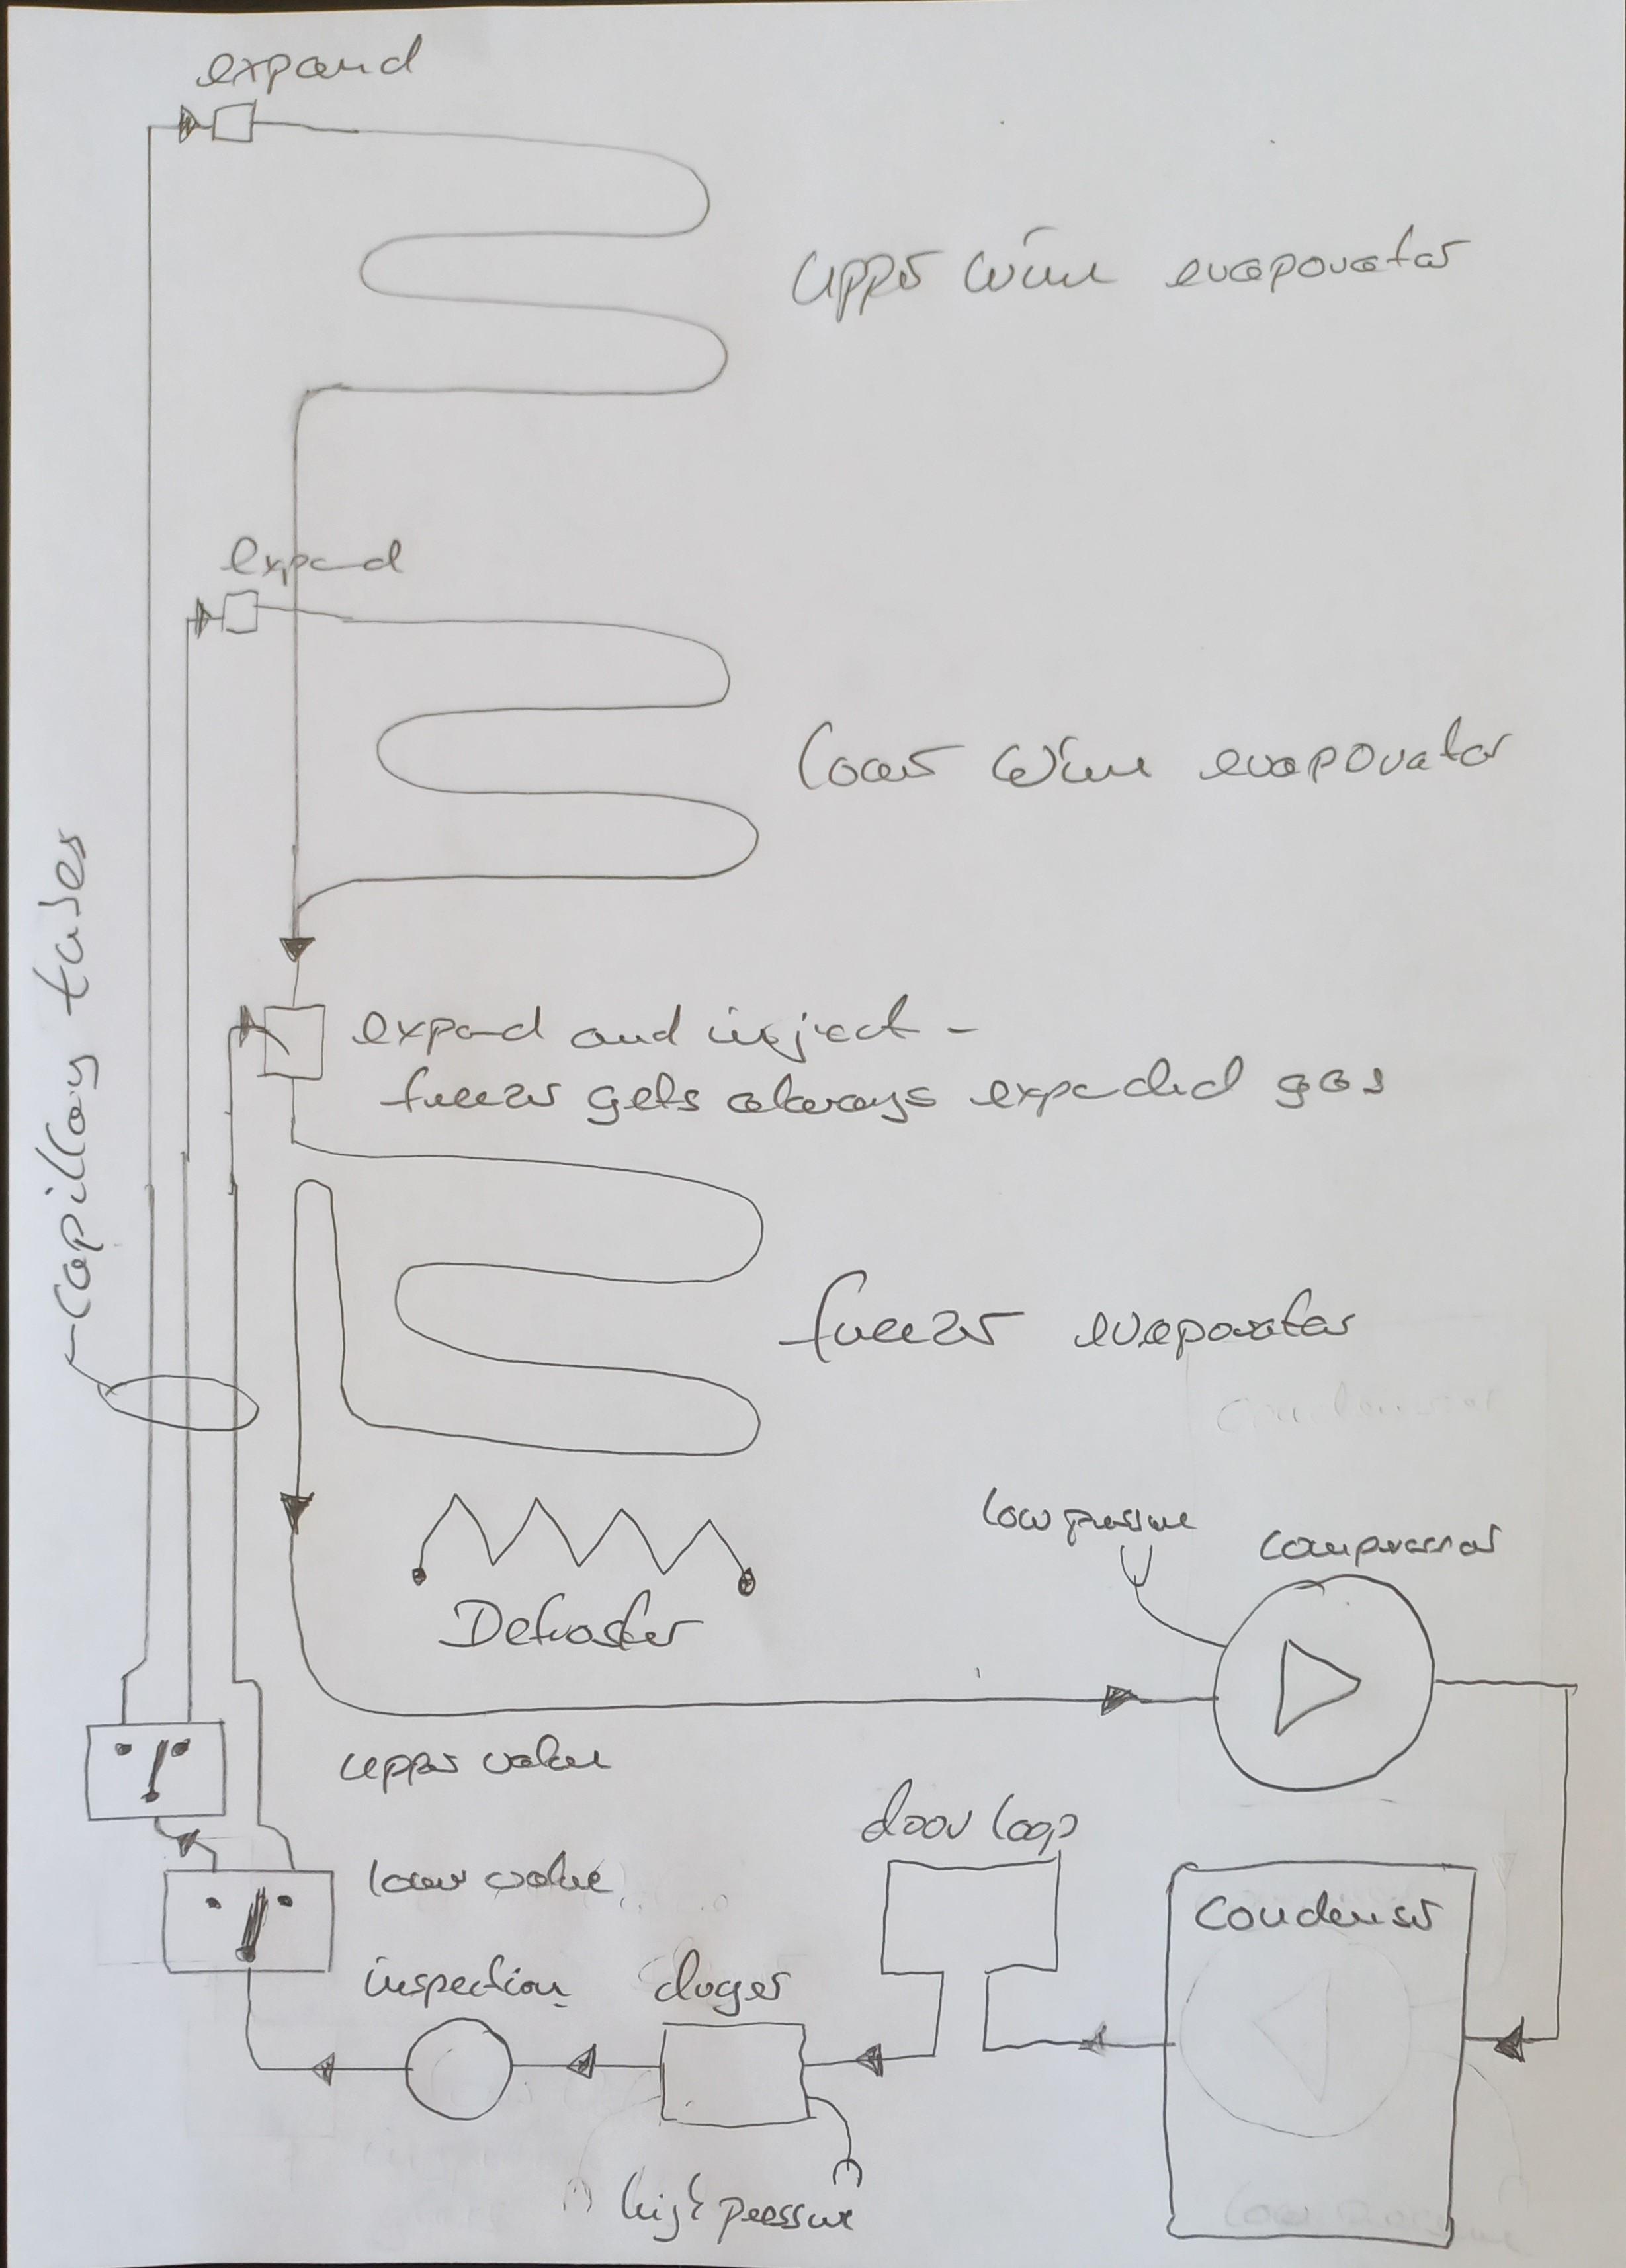 expand
upper wine evaporator
expand
lower wine evaporator
capillary tubes
expand and inject -
freezer gets always expanded gas
freezer evaporator
low pressure
compressor
Defroster
upper valve
door loop
lower valve
condenser
inspection
high pressure